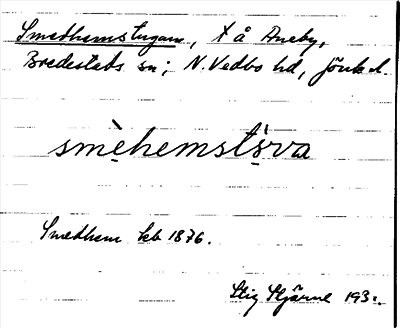 Smedhemstugan, t å Aneby,
Bredestads sn; N. Vedbo hd, Jönk l.
smèhemstùva
Smedhem kb 1876.
Stig Stjärne 193